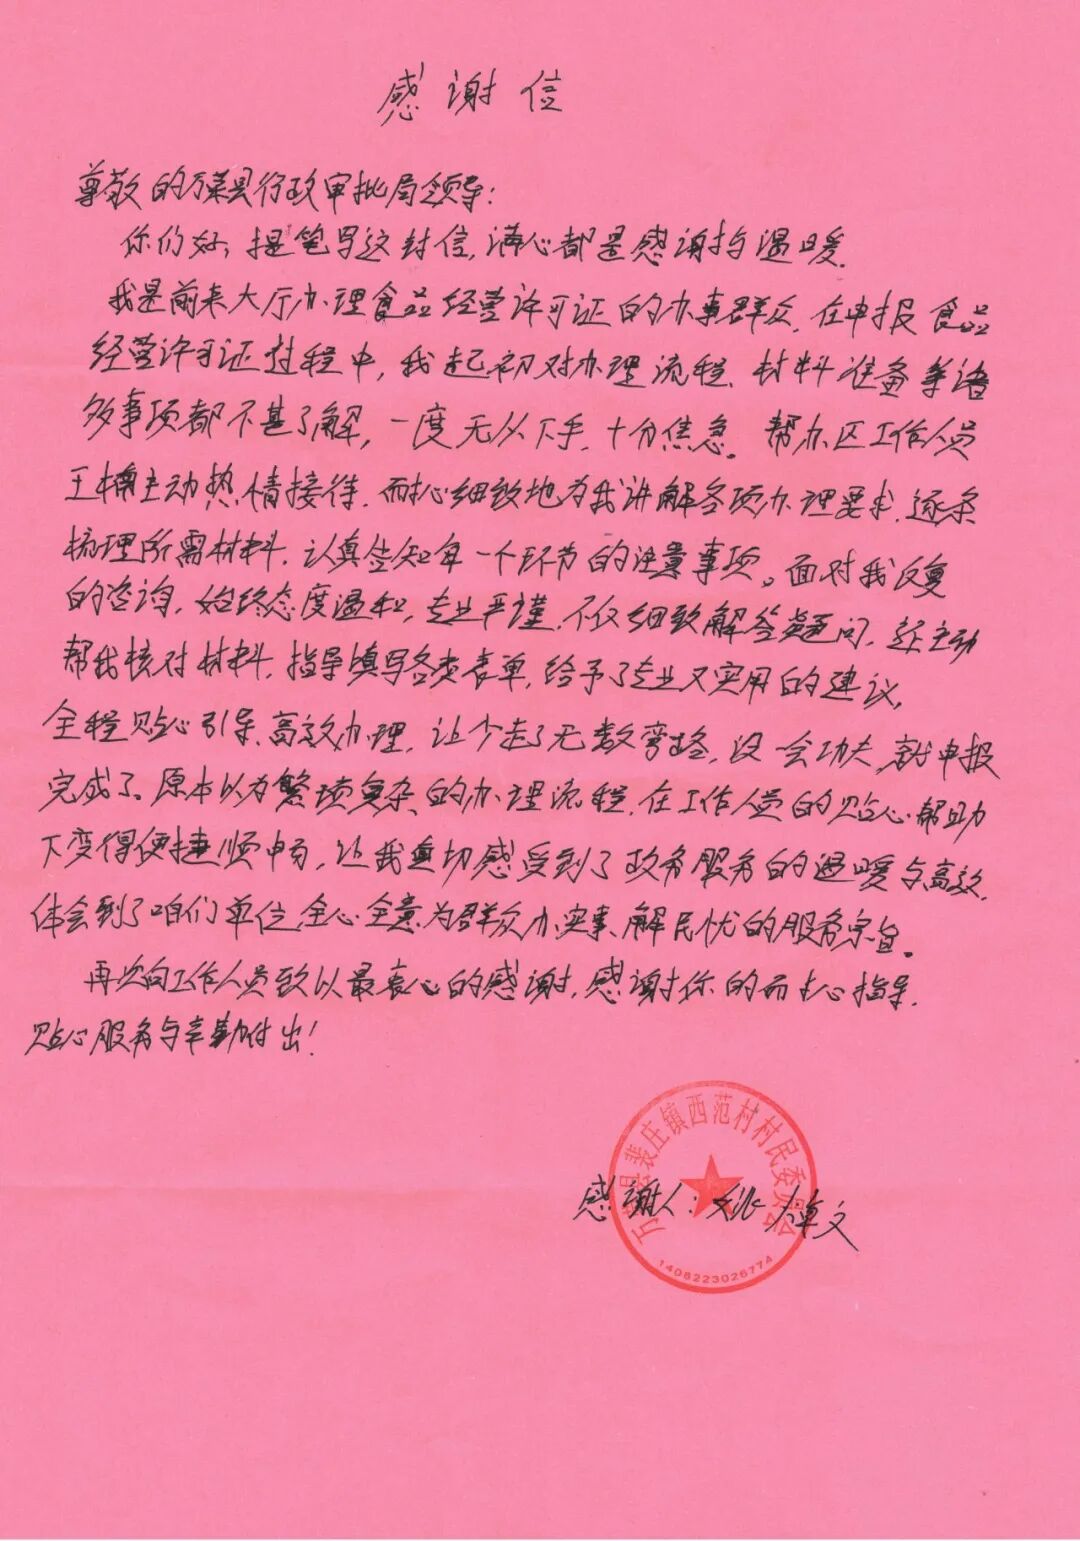 感谢信
尊敬的万荣县行政审批局领导：
你们好，提笔写这封信，满心都是感谢与温暖。
我是前来大厅办理食品经营许可证的办事群众，在申报食品
经营许可证过程中，我起初对办理流程、材料准备等诸
多事项都不甚了解，一度无从下手，十分焦急。帮办区工作人员
王楠主动热情接待，耐心细致地为我讲解各项办理要求，逐条
梳理所需材料，认真告知每一个环节的注意事项。面对我反复
的咨询，始终态度温和，专业严谨，不仅细致解答疑问，还主动
帮我核对材料，指导填写各类表单，给予了专业又实用的建议，
全程贴心引导、高效办理，让少走了无数弯路，没一会功夫，就申报
完成了。原本以为繁琐复杂的办理流程，在工作人员的贴心帮助
下变得便捷顺畅，让我真切感受到了政务服务的温暖与高效，
体会到了咱们单位全心全意为群众办实事、解民忧的服务宗旨。
再次向工作人员致以最衷心的感谢，感谢你的耐心指导，
贴心服务与辛勤付出！
万荣县裴庄镇西范村村民委员会
感谢人：姚 文
1408223026774